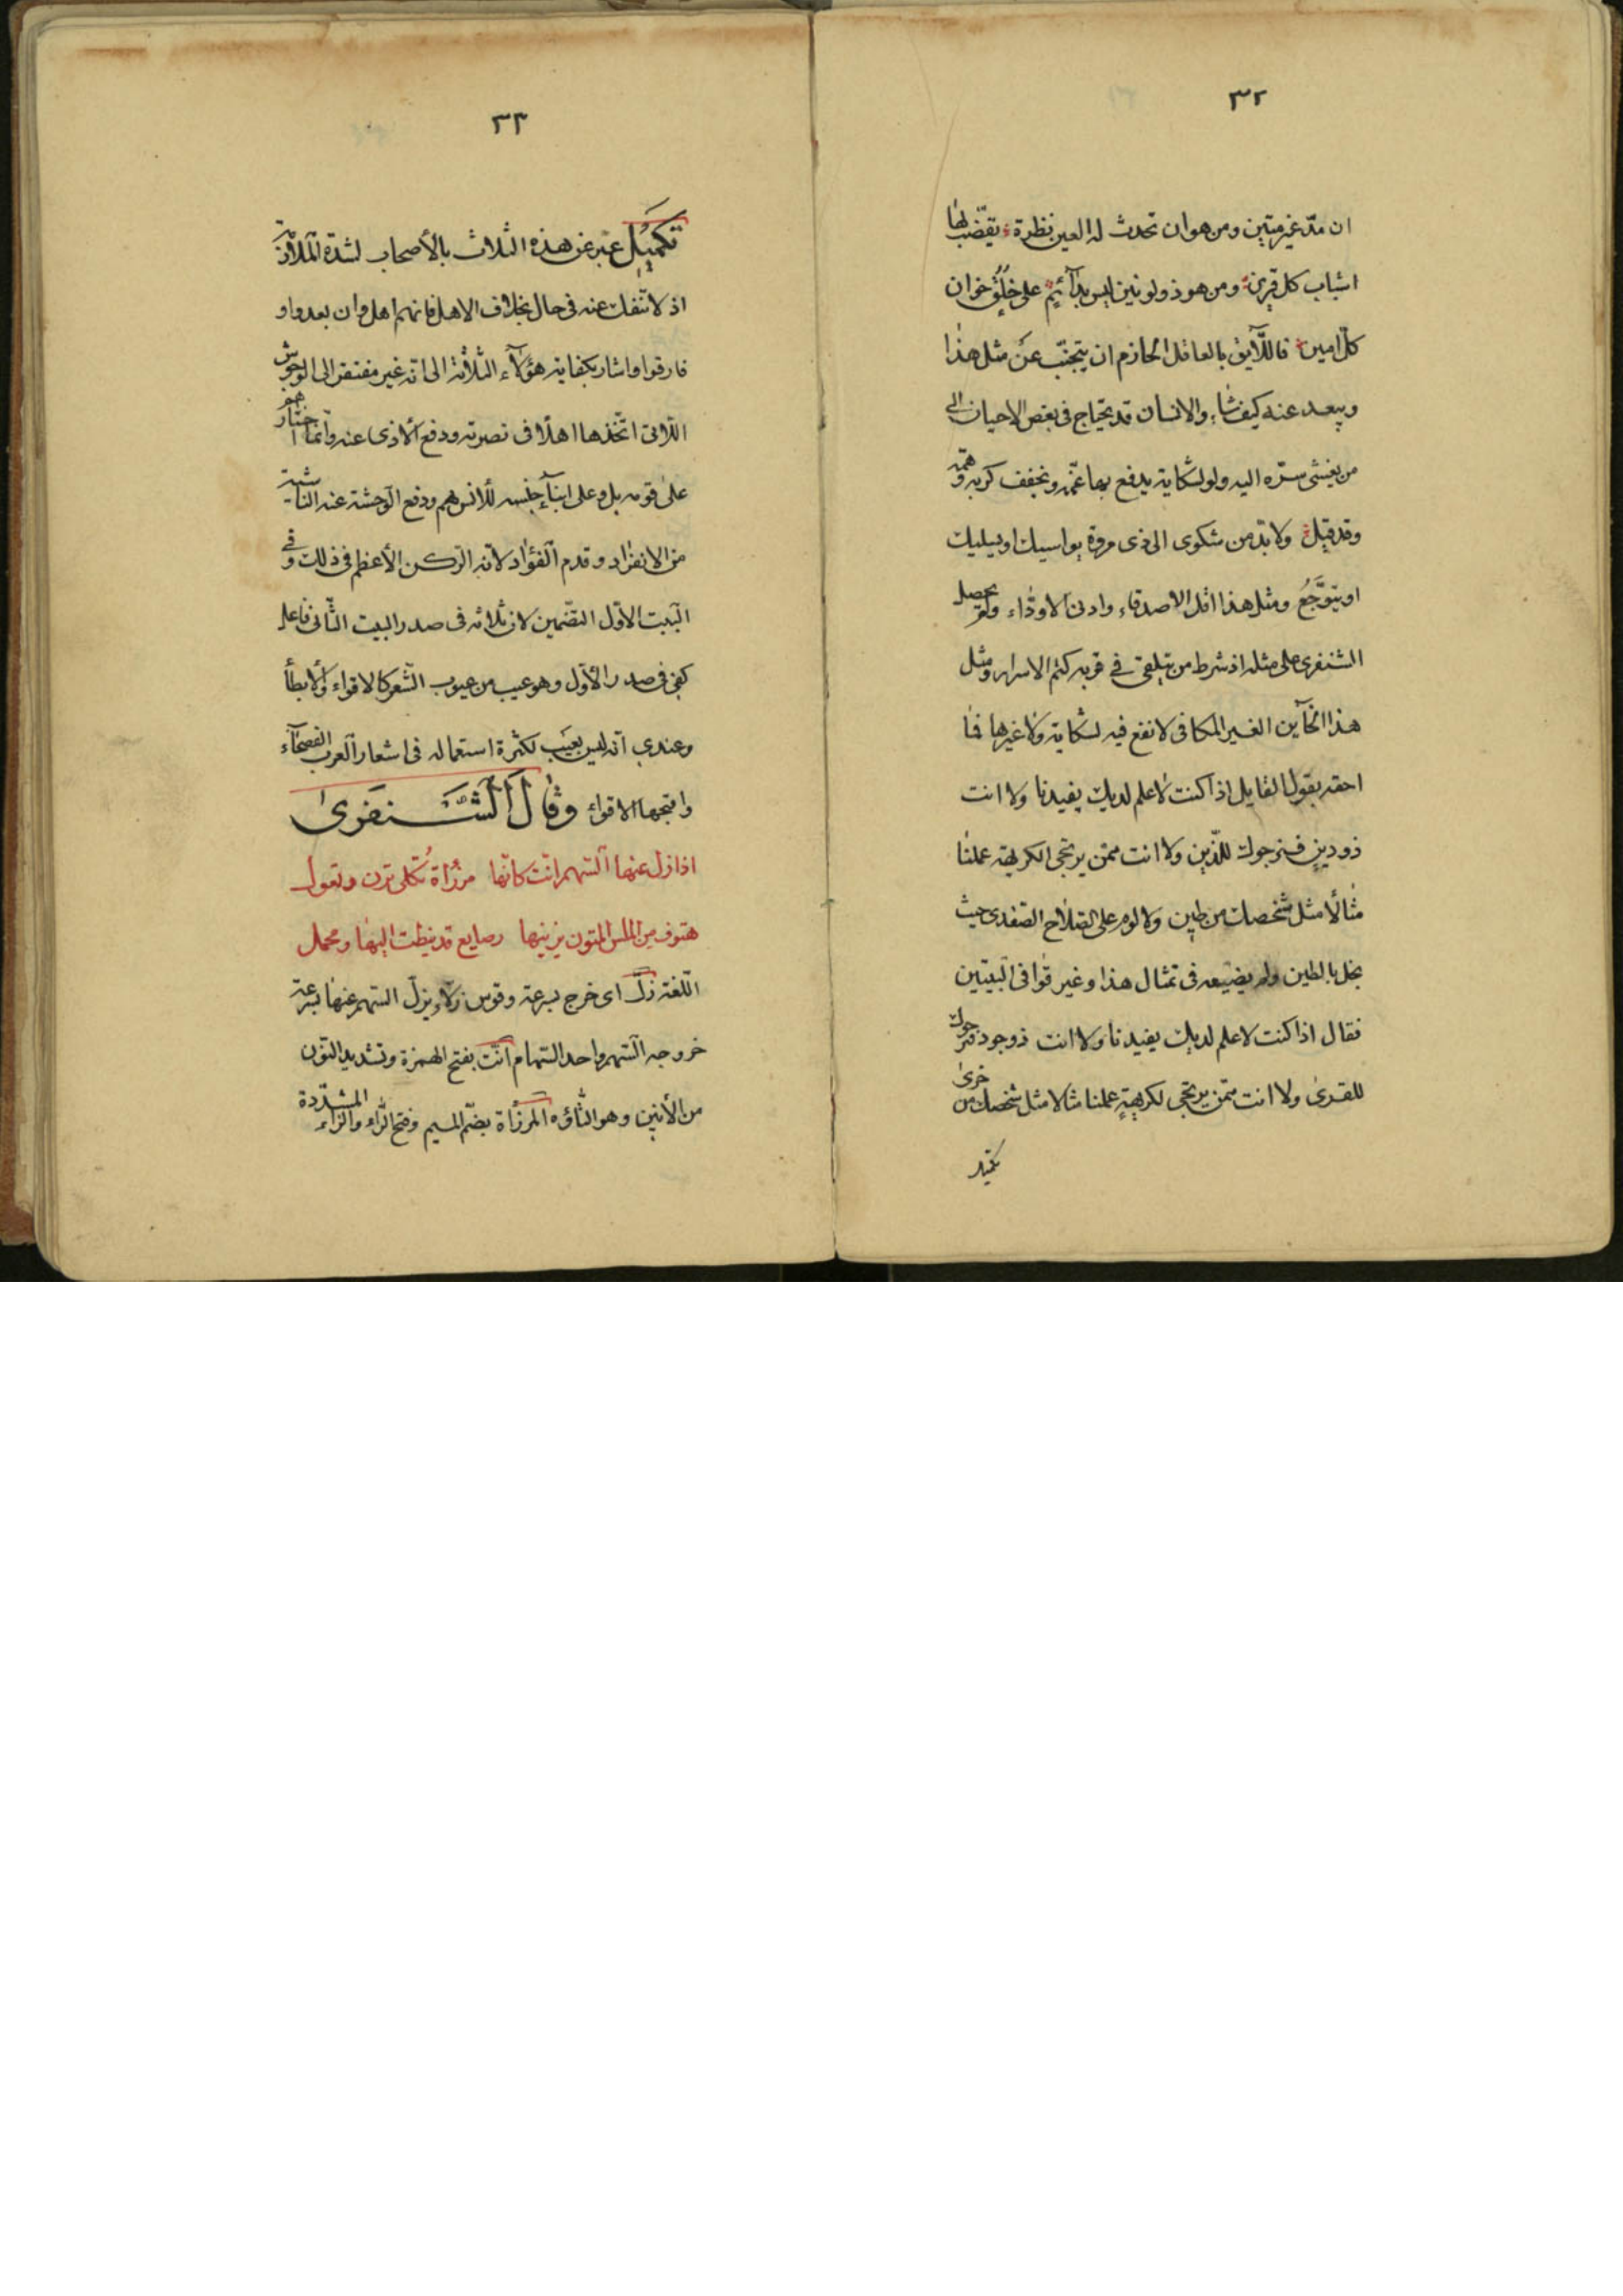 ٣٢
ان مدّ غير متين ومن هو ان تحدث له العين نظرة يقضّب لها
اسباب كل قرين ومن هو ذو لونين ليس بدآئم على خُلُق خوان
كلّ امين فاللّآيق بالعاقل الحازم ان يتجنّب عن مثل هذا
ويبعد عنه كيف شاء والانسان قد يحتاج في بعض الاحيان الى
من يفشى سرّه اليه ولو لشكاية يدفع بها غمّه ويخفف كربه وهمّه
وقد قيل ولا بدّ من شكوى الى ذى مروة يواسيك او يسليك
او يتوجّع ومثل هذا اقل الاصدقاء وادنى الاودّاء ولم يحصل
الشنفرى على مثله اذ شرط من يتلقى في قربه كتم الاسرار ومثل
هذا الخآين الغير المكافى لا نفع فيه لشكاية ولا غيرها فما
احقه بقول القايل اذا كنت لا علم لديك يفيدنا ولا انت
ذو دين فنرجوك للدّين ولا انت ممّن يرتجى الكريهة عملنا
مثالًا مثل شخصك من طين ولا لوم على الصلاح الصفدى حيث
بخل بالطين ولم يضيعه في تمثال هذا وغير قوافى البيتين
فقال اذا كنت لا علم لديك يفيدنا ولا انت ذو جود فنرجوك
للقرى ولا انت ممّن يرتجى لكريهةٍ عملنا مثالا مثل شخصك من خرى
تكميل
٣٣
تكميل عبر عن هذه الثلاث بالأصحاب لشدّة الملازمة
اذ لا تنفك عنه في حال بخلاف الاهل فانهم اهل وان بعدوا و
فارقوا واشار بكفاية هؤلآء الثلاثة الى انّه غير مفتقر الى الوحوش
اللآتى اتّخذها اهلًا في نصرته ودفع الأذى عنه وانما اختارهم
على قومه بل وعلى ابنآء جنسه للأنس بهم ودفع الوحشة عنه الناشئة
من الانفراد وقدم الفؤاد لانّه الركن الأعظم في ذلك وفي
البيت الاوّل التضمين لان ثلاثه في صدر البيت الثّانى فاعل
كفى في صدر الأوّل وهو عيب من عيوب الشعر كالاقواء والأيطأ
وعندى انّه ليس بعيب لكثرة استعماله في اشعار العرب الفصحآء
واقبحها الاقواء وقال الشنفرى
اذا زلّ عنها السّهم انّت كانّها مرزّاة ثكلى ترن وتعول
هتوف من الملس المتون يزينها رصايع قد نيطت اليها ومحمل
اللّغة زلّ اى خرج بسرعة وقوس زلاء يزلّ السّهم عنها بسرعة
خروجه السّهم واحد السّهام انّت بفتح الهمزة وتشديد النّون
من الأنين وهو التّأوّه المرزّاة بضمّ الميم وفتح الرّاء والزّاء المشدّدة